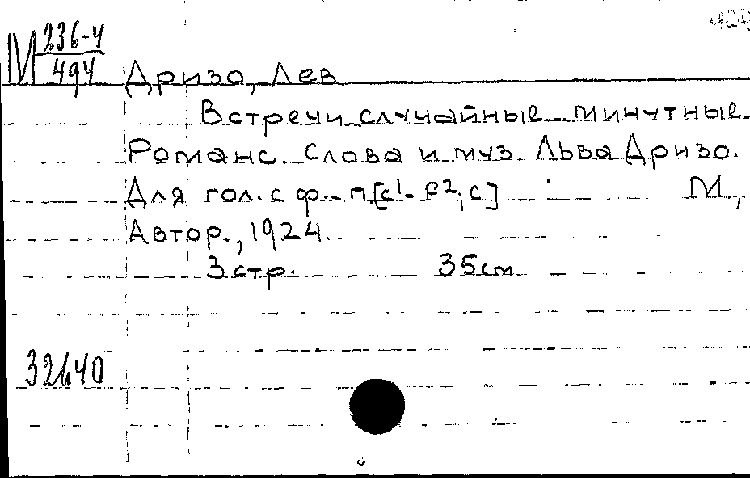 М 236-4
494
Дризо, Лев
Встречи случайные минутные.
Романс. Слова и муз. Льва Дризо.
Для гол. с ф.-п. [c¹-f²; c] М.,
Автор., 1924.
3 стр. 35 см
32640